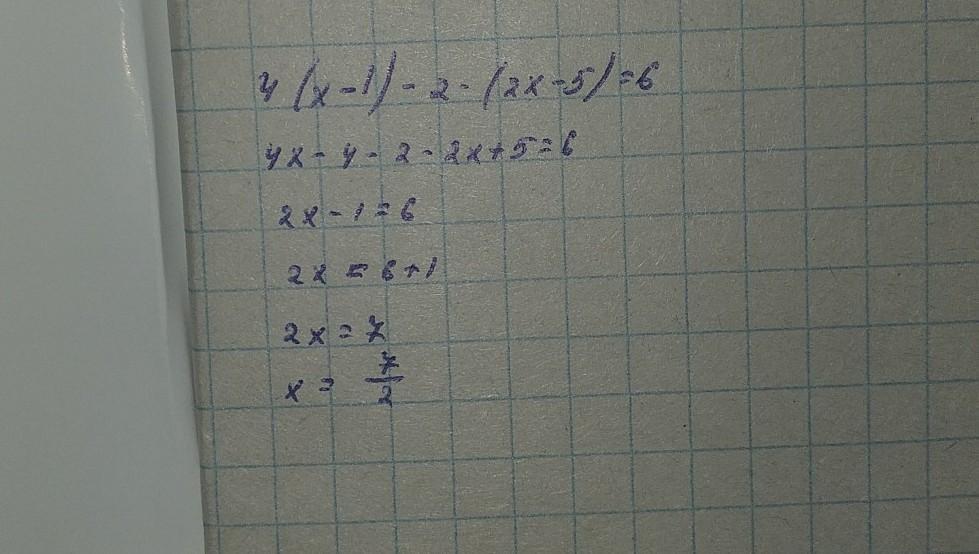 4(x-1)-2-(2x-5)=6
4x-4-2-2x+5=6
2x-1=6
2x=6+1
2x=7
x=7/2